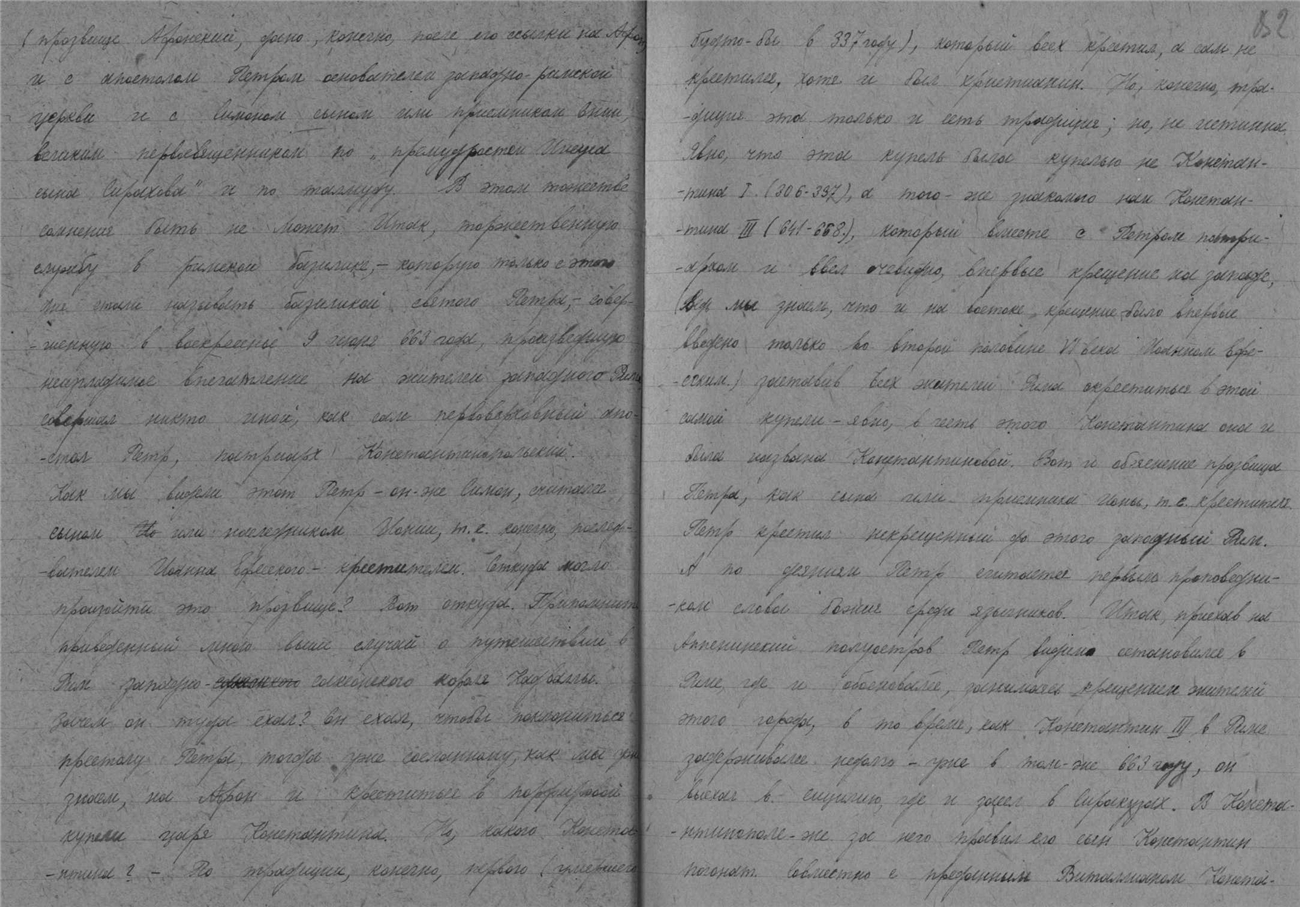 (прозвище Афонский, дано, конечно, после его ссылки на Афон)
и с апостолом Петром основателем западно-римской
церкви и с Симоном сыном или приемником Онии,
великим первосвященником по „премудрости Иисуса
сына Сирахова" и по талмуду. В этом тожестве
сомнения быть не может. Итак, торжественную
службу в римской базилике, - которую только с этого
же стали называть базиликой святого Петра, - совер-
-шенную в воскресенье 9 июня 663 года, произведшую
неизгладимое впечатление на жителей западного Рима
совершал никто иной, как сам первоверховный апо-
-стол Петр, патриарх Константинопольский.
Как мы видели этот Петр - он-же Симон, считался
сыном или наследником Ионии, т.е. конечно, последо-
-вателем Иоанна Ефесского - крестителем. Откуда могло
произойти это прозвище? Вот откуда. Припомните
приведенный мною выше случай о путешествии в
Рим западно- саксонского короля Кадваллы.
Зачем он туда ехал? Он ехал, чтобы поклониться
престолу Петра, тогда уже сосланному, как мы уже
знаем, на Афон и креститься в порфировой
купели царя Константина. Но, какого Конста-
-нтина? - По традиции, конечно, первого (умершего
82
будто-бы в 337 году), который всех крестил, а сам не
крестился, хотя и был христианин. Но, конечно, тра-
-диция эта только и есть традиция; но, не истинна
Явно, что эта купель была купелью не Констан-
-тина I (306-337), а того-же знакомого нам Констан-
-тина III (641-668), который вместе с Петром патри-
-архом и ввел очевидно, впервые крещение на западе,
(Ведь мы знаем, что и на востоке крещение было впервые
введено только во второй половине VI века Иоанном Ефе-
-сским) заставив всех жителей Рима окреститься в этой
самой купели - явно, в честь этого Константина она и
была названа Константиновой. Вот и объяснение прозвища
Петра, как сына или приемника Ионы, т.е. крестителя.
Петр крестил некрещенный до этого западный Рим.
А по деяниям Петр считается первым проповедни-
-ком слова божия среди язычников. Итак, приехав на
Аппенинский полуостров Петр видимо остановился в
Риме, где и обосновался, занимаясь крещением жителей
этого города, в то время, как Константин III в Риме
задерживался недолго - уже в том-же 663 году, он
выехал в Сицилию, где и засел в Сиракузах. В Конста-
-нтинополе-же за него правил его сын Константин
Погонат совместно с преданным Виталлианом Конста-